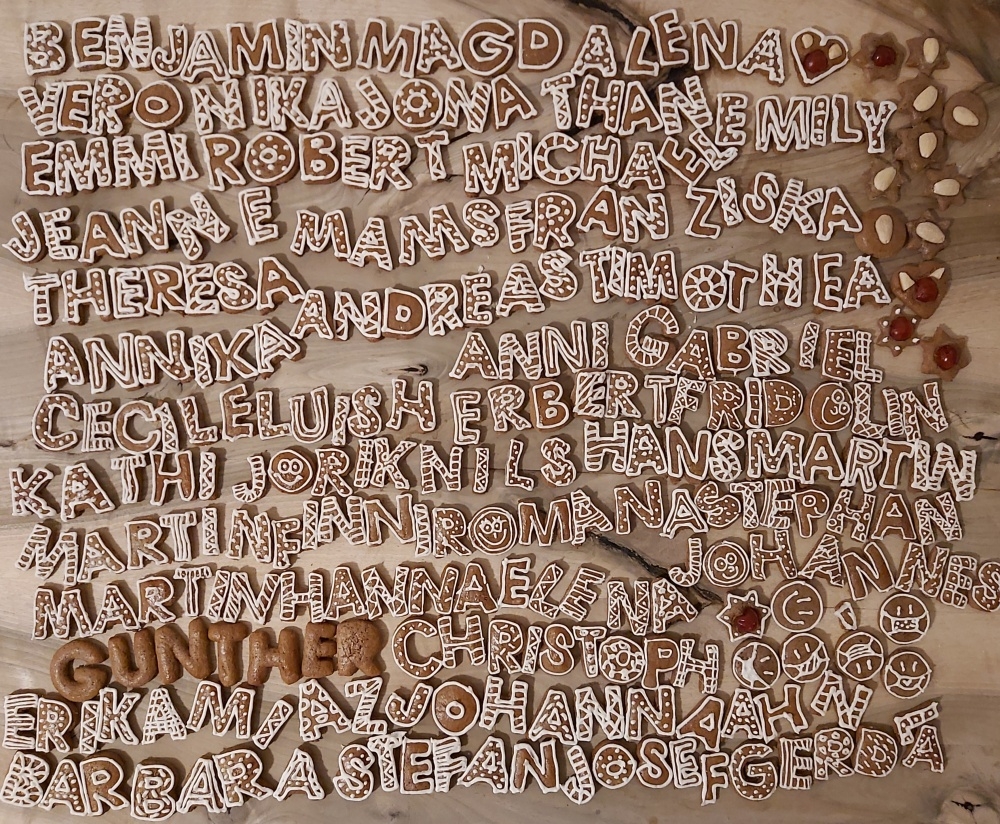 BENJAMIN MAGDALENA
VERONIKA JONA THANE EMILY
EMMI ROBERT MICHAEL
JEANNE MAMS FRANZISKA
THERESA ANDREAS TIMO THEA
ANNIKA ANNI GABRIEL
CECILE LUISH ERBERT FRIDOLIN
KATHI JORIK NILS HANS MARTIN
MARTIN FINN IROMANA STEPHAN
MARTIN HANNA ELENA JOHANNES
GUNTHER CHRISTOPH
ERIKA MIAZ JOHANNA AHN
BARBARA STEFAN JOSEF GERDA